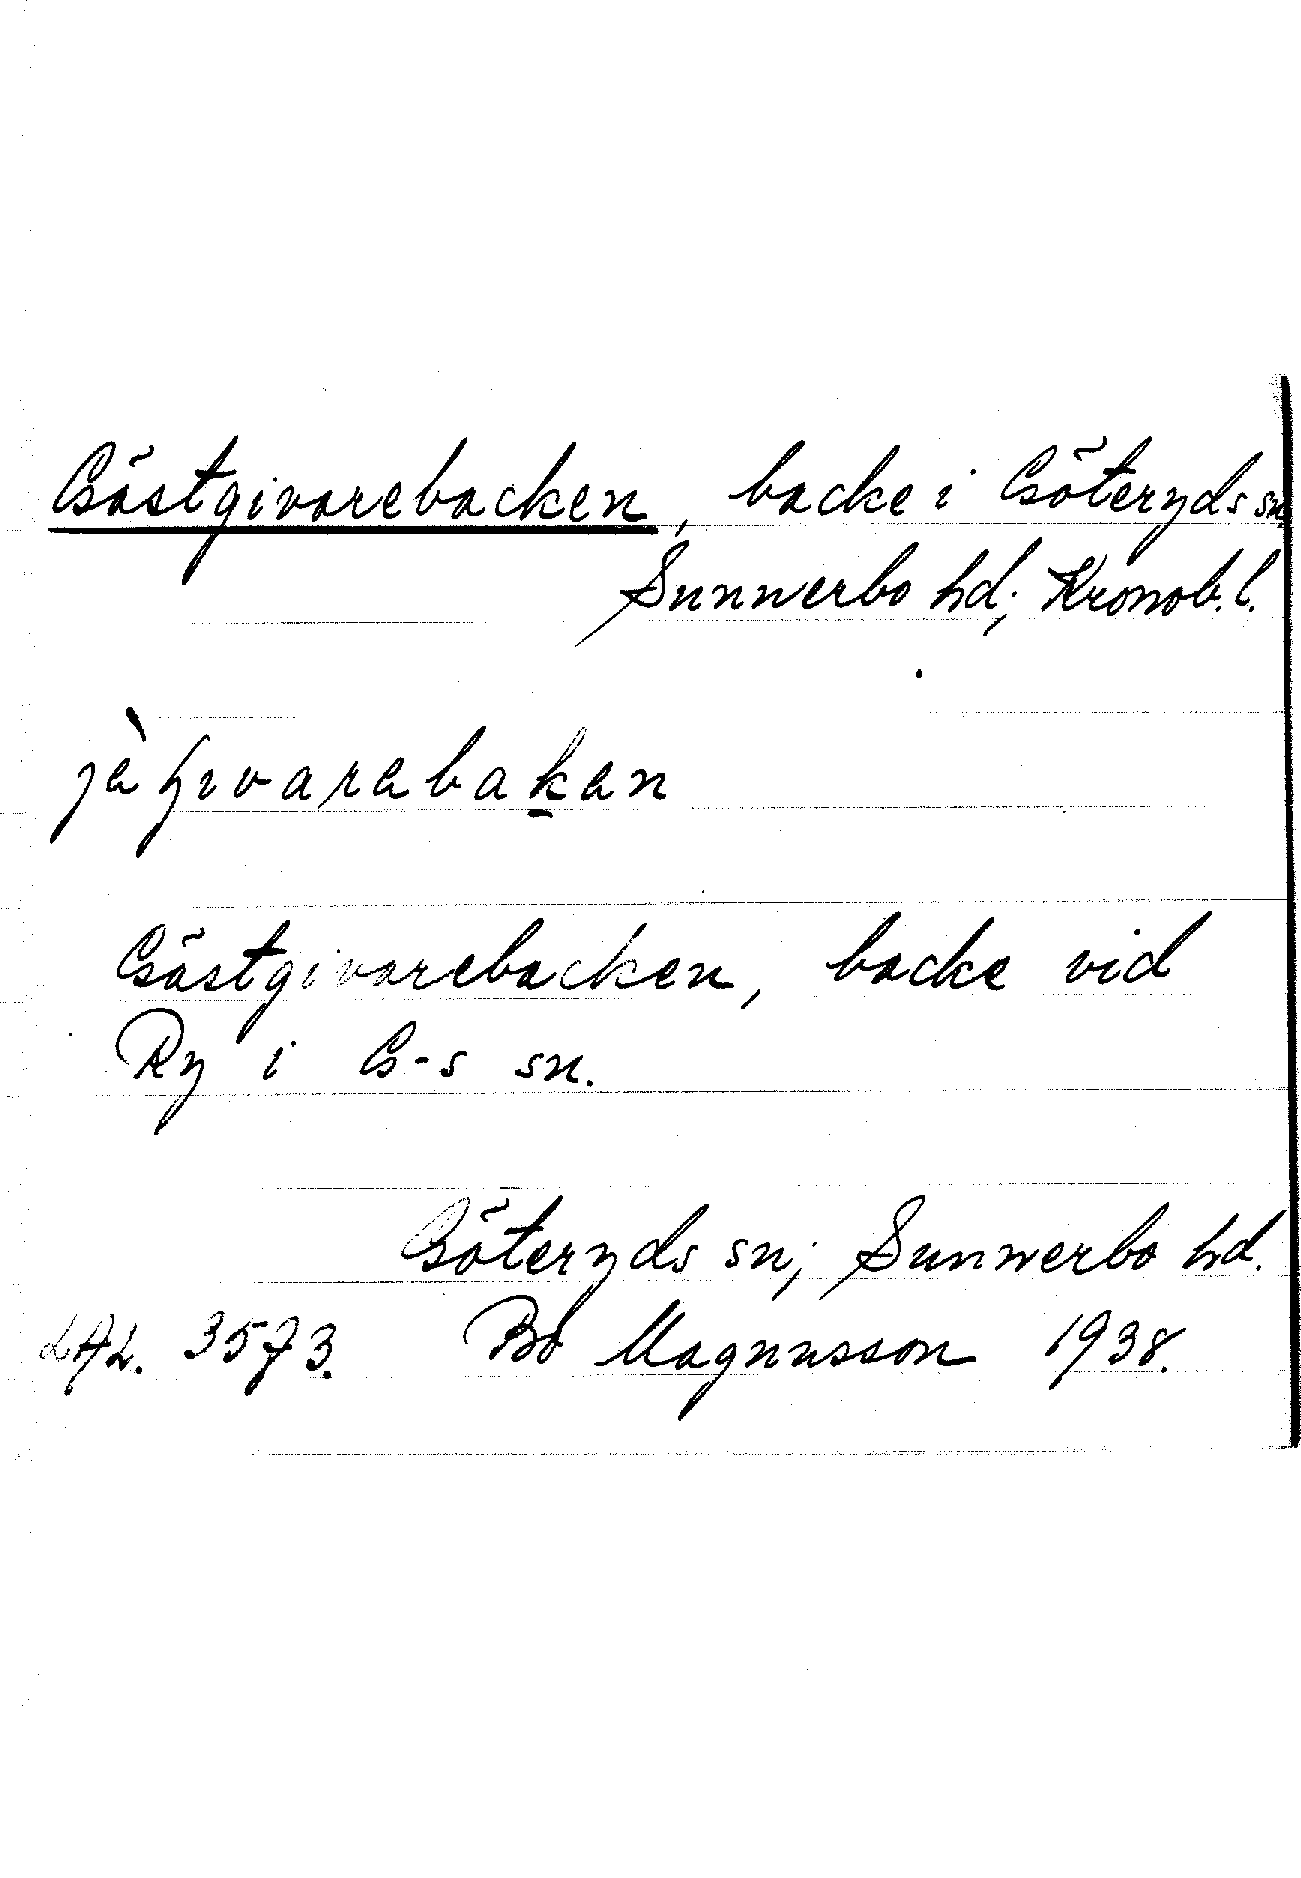 Gästgivarebacken, backe i Göteryds sn
Sunnerbo hd; Kronob. l.
Gästgivarebacken, backe vid
Ry i G-s sn.
Göteryds sn; Sunnerbo hd.
LAL. 3573. Bo Magnusson 1938.